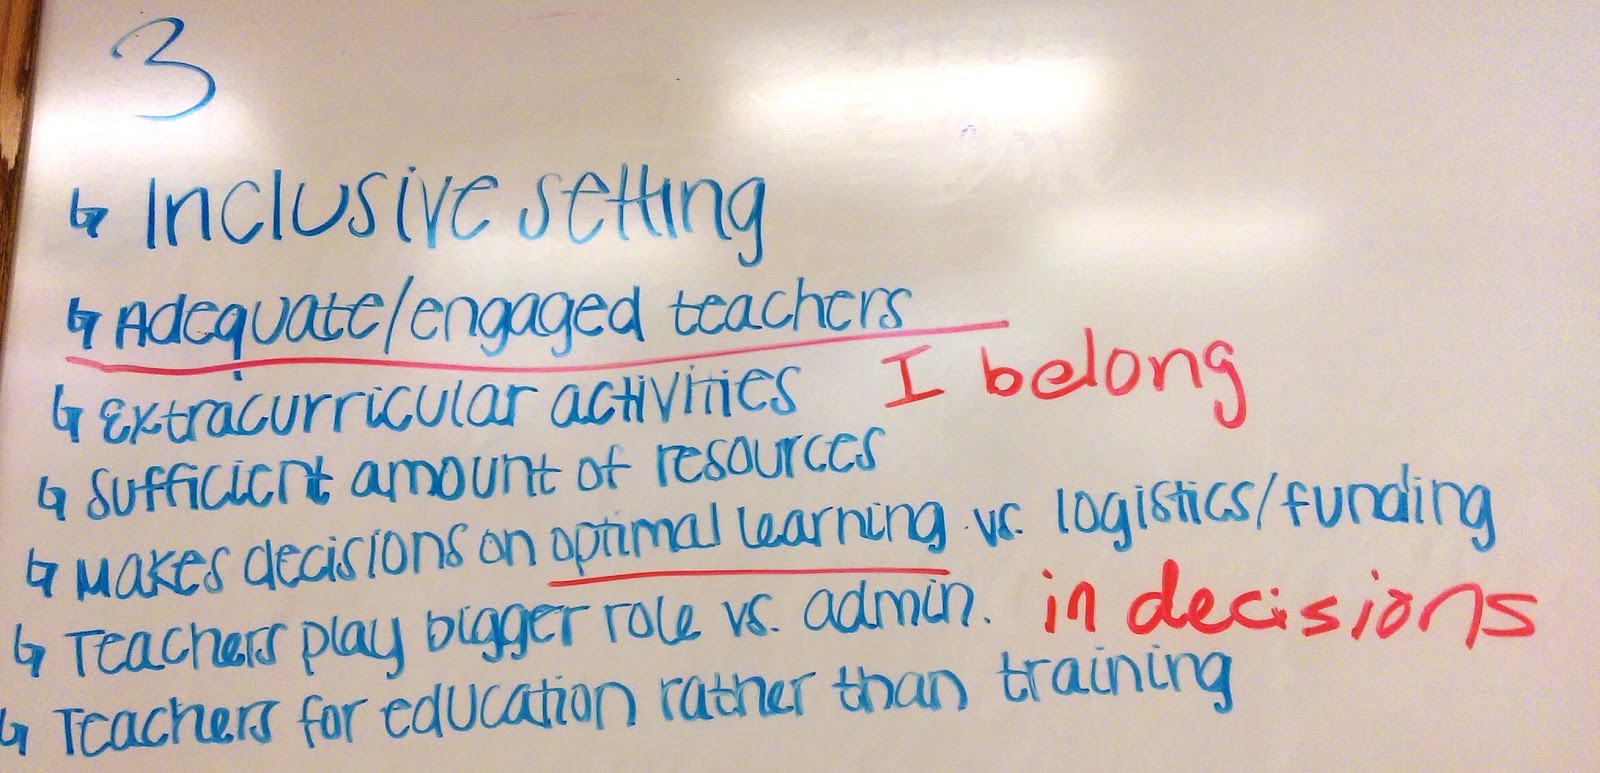 3
↳ Inclusive setting
↳ Adequate/engaged teachers
↳ Extracurricular activities I belong
↳ Sufficient amount of resources
↳ Makes decisions on optimal learning vs. logistics/funding
↳ Teachers play bigger role vs. admin. in decisions
↳ Teachers for education rather than training